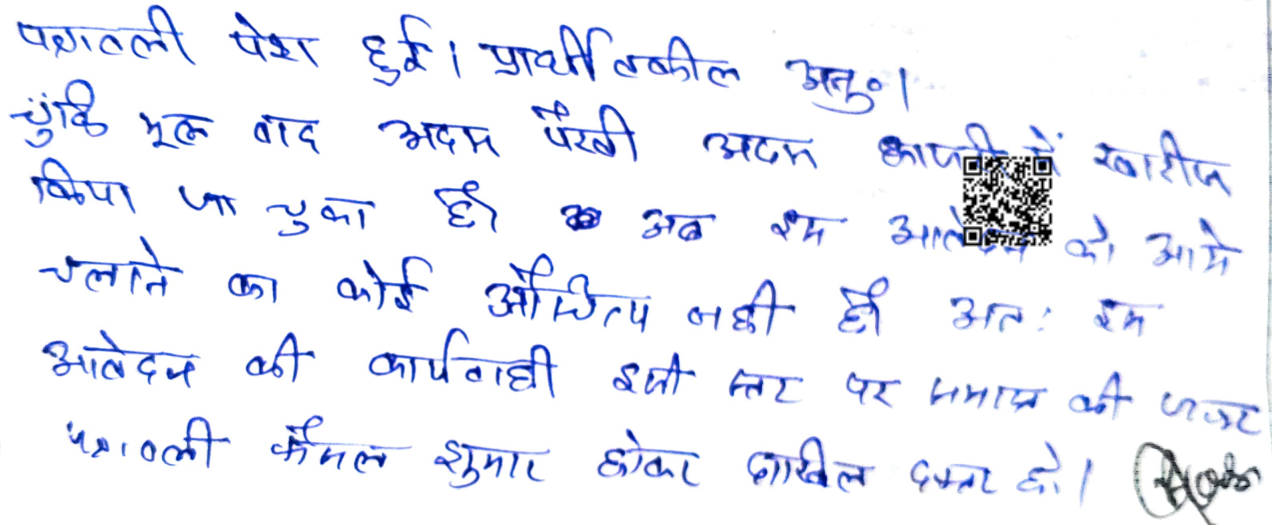 पत्रावली पेश हुई। प्रार्थी वकील अनु०।
चुंकि मूल वाद अदम पैरवी अदम में खारीज
किया जा चुका है। अब इस को आगे
चलाने का कोई औचित्य नही है। अतः इस
आवेदन की कार्यवाही इसी स्तर पर समाप्त की जाकर
पत्रावली फैसल शुमार होकर दाखिल दफ्तर हो।